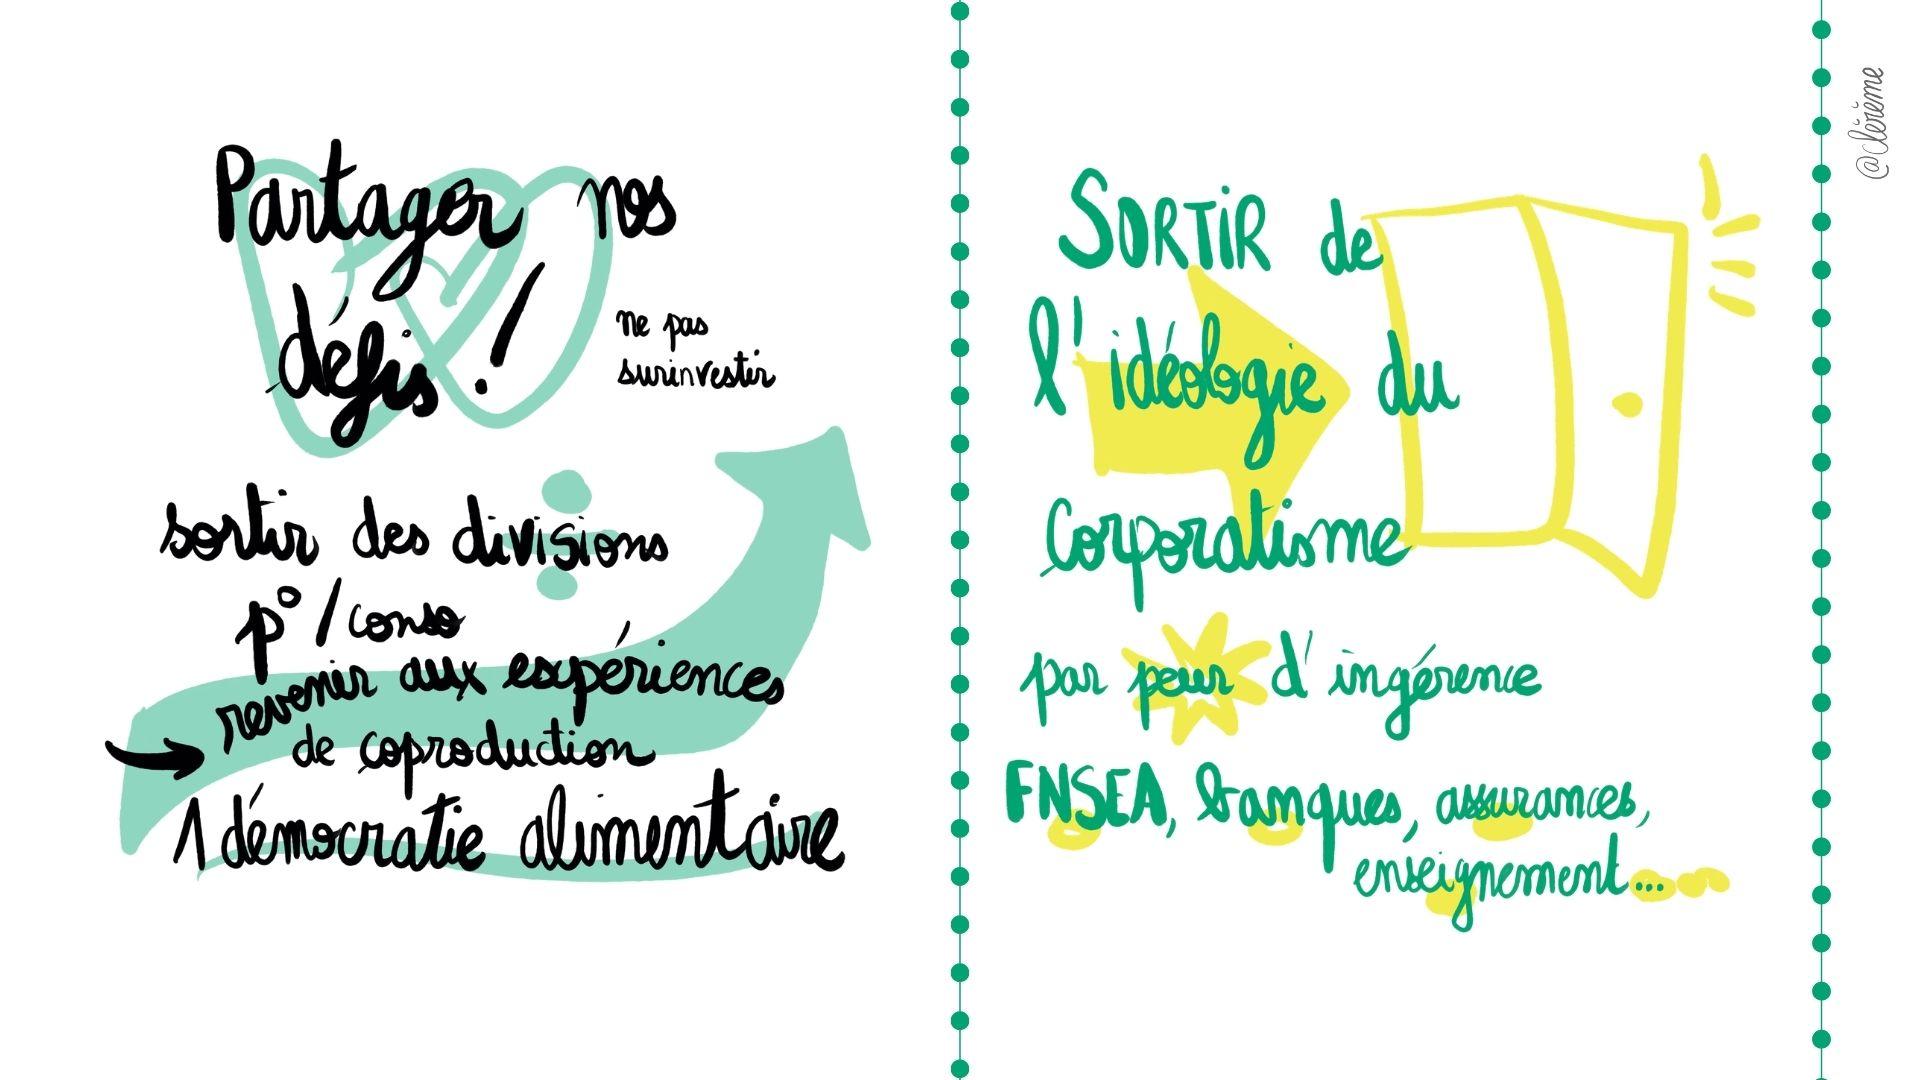 Partager nos
défis !
ne pas
surinvestir
sortir des divisions
p° / conso
revenir aux expériences
de coproduction
1 démocratie alimentaire
SORTIR de
l'idéologie du
Corporatisme
par peur d'ingérence
FNSEA, banques, assurances,
enseignement...
@clérème